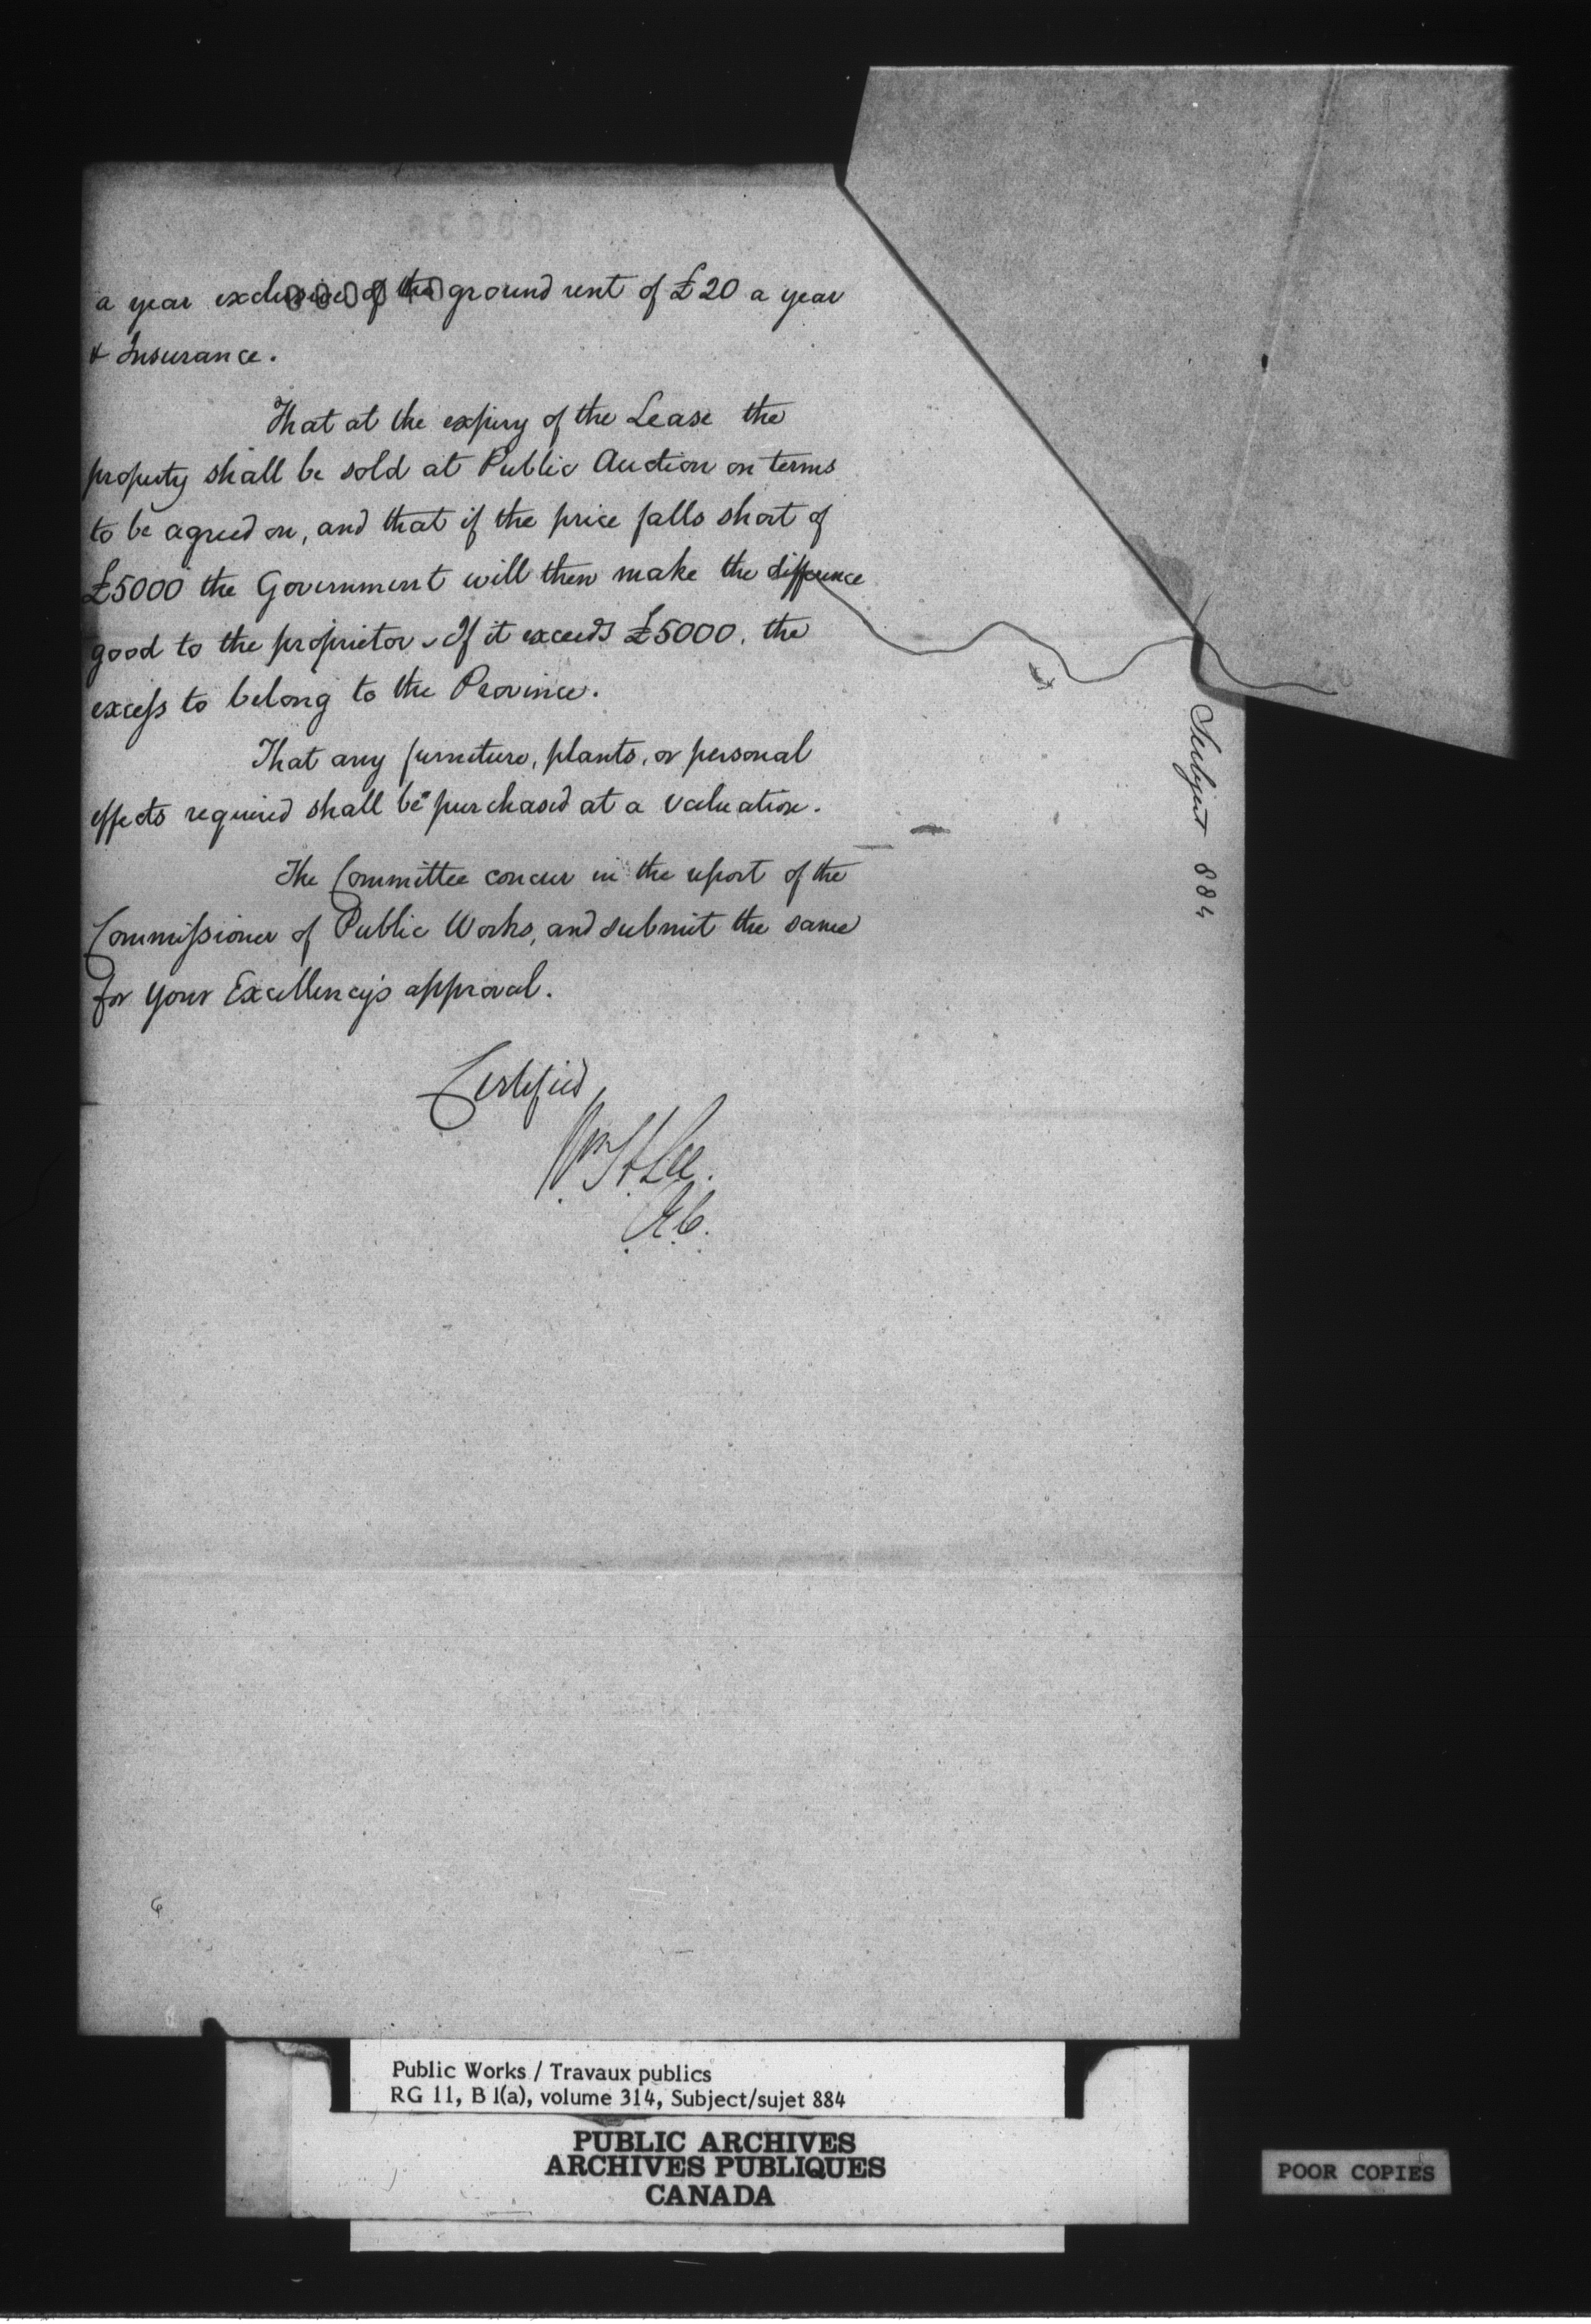 a year exclusive of the ground rent of £20 a year
& Insurance.
That at the expiry of the Lease the
property shall be sold at Public Auction on terms
to be agreed on, and that if the price falls short of
£5000 the Government will then make the difference
good to the proprietor. If it exceeds £5000. the
excess to belong to the Province.
That any furniture, plants, or personal
effects required shall be purchased at a valuation.
The Committee concur in the report of the
Commissioner of Public Works, and submit the same
for Your Excellency's approval.
Certified
Wm H Lee.
Subject 884
Public Works / Travaux publics
RG 11, B 1(a), volume 314, Subject/sujet 884
PUBLIC ARCHIVES
ARCHIVES PUBLIQUES
CANADA
POOR COPIES